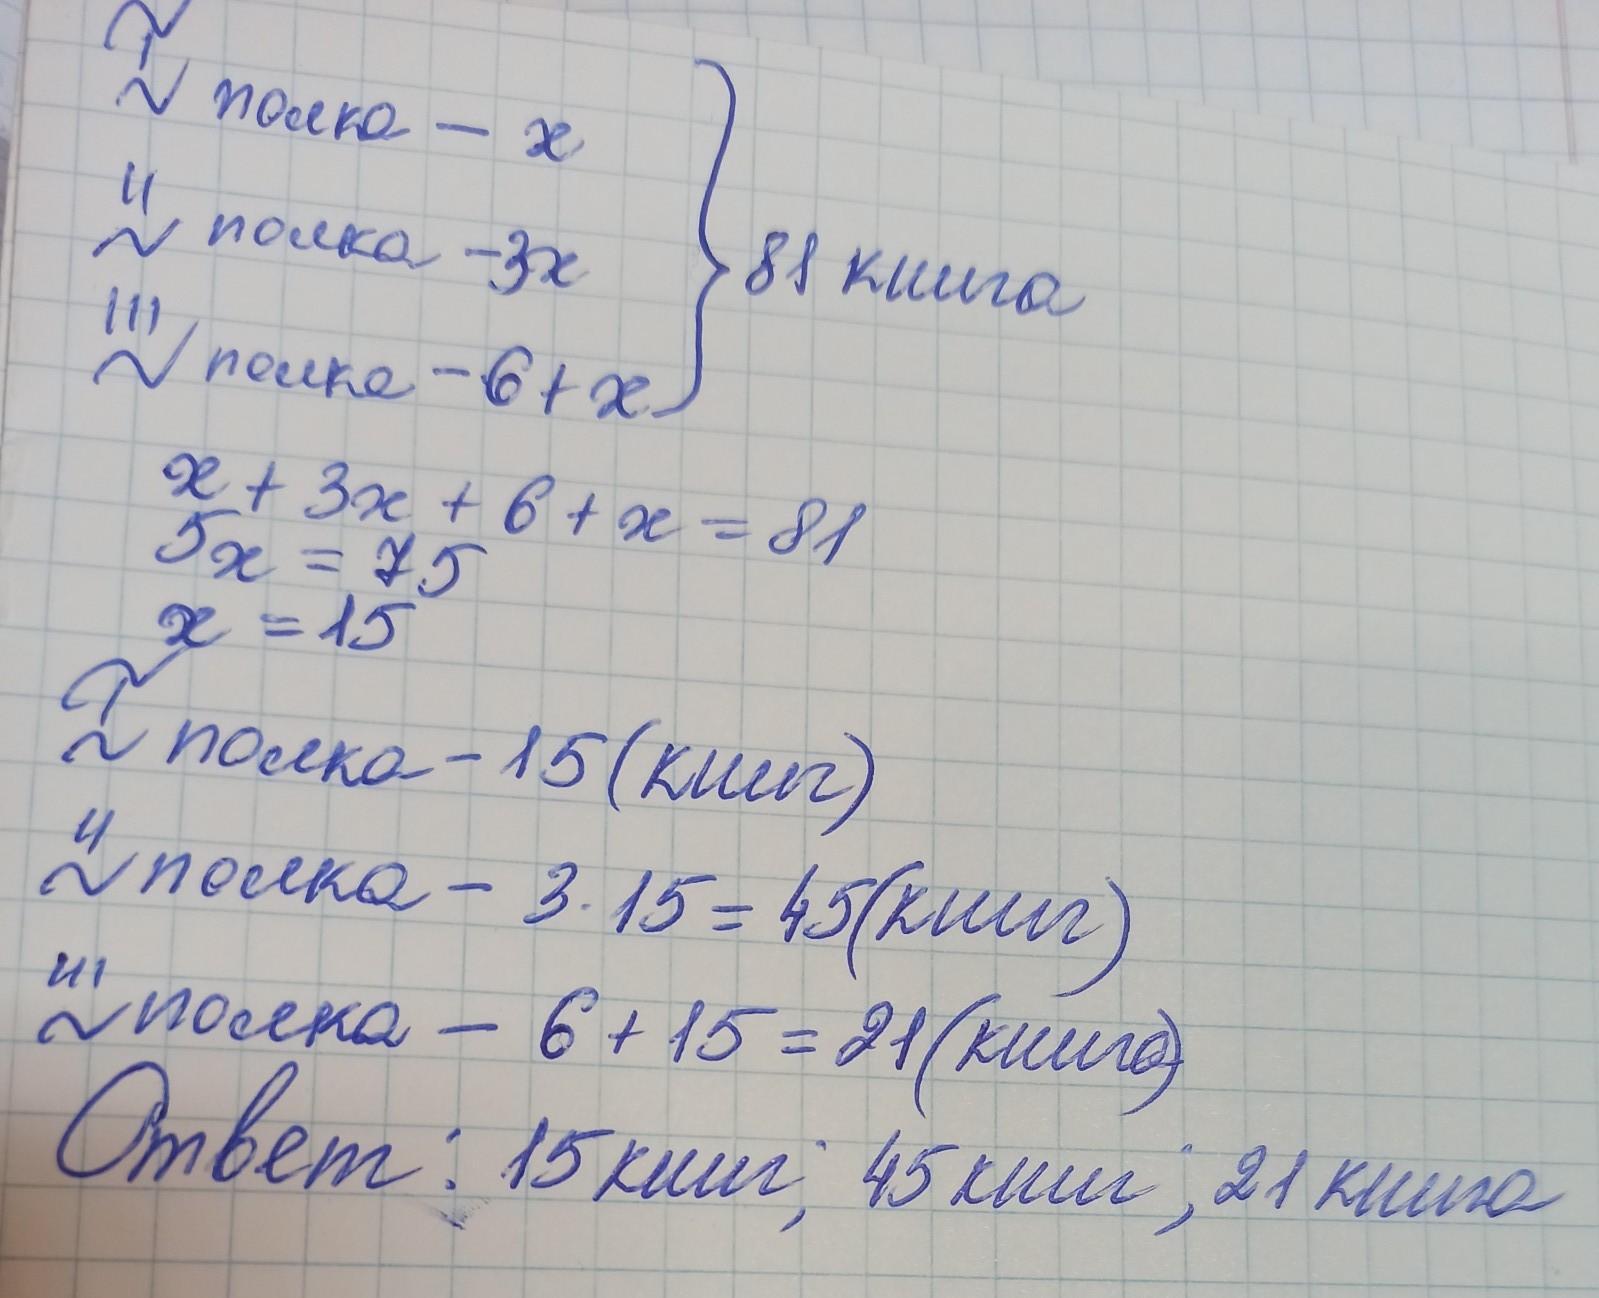 I полка - x
II полка - 3x
III полка - 6 + x
81 книга
x + 3x + 6 + x = 81
5x = 75
x = 15
I полка - 15 (книг)
II полка - 3 · 15 = 45 (книг)
III полка - 6 + 15 = 21 (книга)
Ответ: 15 книг; 45 книг; 21 книга